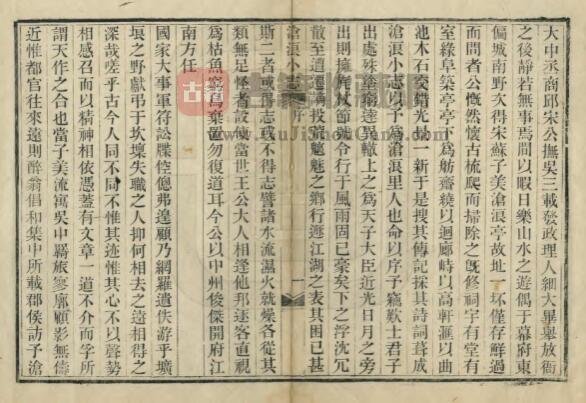 大中丞商邱宋公撫吳三載發政理人細大畢舉放衙
之後靜若無事焉間以暇日樂山水之遊偶于幕府東
偏城南野次得宋蘇子美滄浪亭故址一坏僅存鮮過
而問者公慨然懷古梳爬而掃除之旣修祠宇有堂有
室緣阜築亭亭下為舫齋繞以迴廊峙以高軒滙以曲
池水石交錯光景一新于是搜其傳記採其詩詞葺成
滄浪小志以予為滄浪里人也命以序予竊歎士君子
出處殊塗窮達異轍上之為天子大臣近光日月之旁
出則擁旄仗節號令行于風雨固已豪矣下之浮沈冗
散至遺投荒魑魅之鄉行遊江湖之表其困已甚
滄浪小志
序
一
斯二者或得志或不得志譬諸水流濕火就燥各從其
類無足怪者設使當世王公大人相逢他邦逐客直視
為枯魚窮鳥棄置勿復道耳今公以中州俊傑開府江
南方任
國家大事軍符訟牒倥傯弗遑顧乃網羅遺佚游乎壙
埌之野獻弔于坎壈失職之人抑何相去之遠相得之
深哉嗟乎古今人同不同不惟其迹惟其心不以聲勢
相感召而以精神相依憑蓋有文章一道不介而孚所
謂天作之合也當子美流寓吳中羇旅寥廓顧影無儔
近惟都官往來遠則醉翁倡和集中所載郡侯訪予滄
古籍